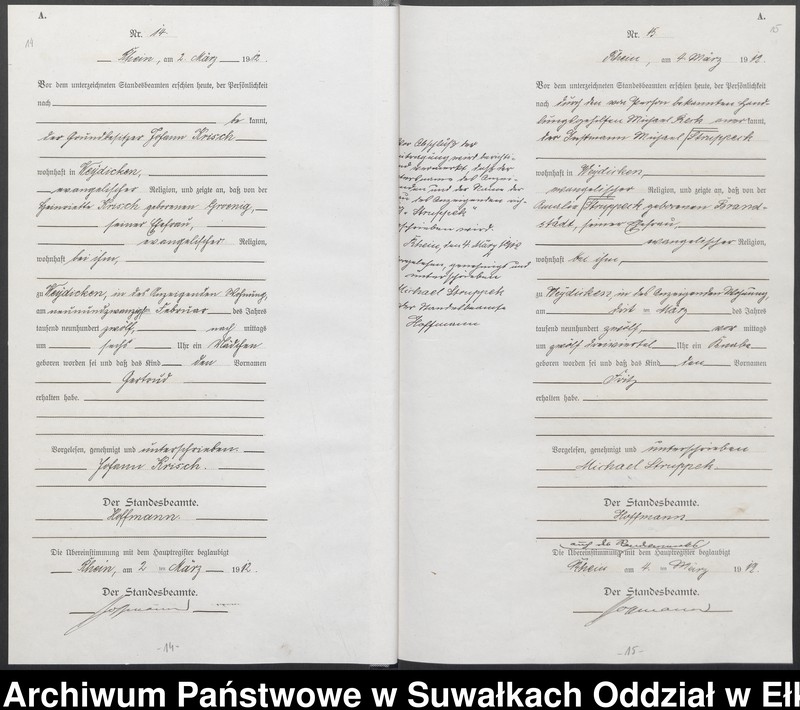 A.
14
Nr. 14
Rhein, am 2. März 1912.
Vor dem unterzeichneten Standesbeamten erschien heute, der Persönlichkeit
nach
be kannt,
der Grundbesitzer Johann Krisch
wohnhaft in Weydicken,
evangelischer Religion, und zeigte an, daß von der
Henriette Krisch geborenen
seiner Ehefrau,
evangelischer Religion,
wohnhaft bei ihm,
zu Weydicken, in des Anzeigenden Wohnung,
am neunundzwanzigsten Februar des Jahres
tausend neunhundert zwölf, nach mittags
um sechs Uhr ein Mädchen
geboren worden sei und daß das Kind den Vornamen
Gertrud
erhalten habe.
Vorgelesen, genehmigt und unterschrieben.
Johann Krisch.
Der Standesbeamte.
Hoffmann
Die Übereinstimmung mit dem Hauptregister beglaubigt
Rhein, am 2 ten März 1912.
Der Standesbeamte.
Hoffmann
-14-
A.
15
Nr. 15
Rhein, am 4. März 1912.
Vor dem unterzeichneten Standesbeamten erschien heute, der Persönlichkeit
nach durch den von Person bekannten Hand-
lungsgehilfen Michael anerkannt,
der Instmann Michael Struppeck
wohnhaft in Weydicken,
evangelischer Religion, und zeigte an, daß von der
Amalie Struppeck geborenen Brand-
städt, seiner Ehefrau,
evangelischer Religion,
wohnhaft bei ihm,
zu Weydicken, in des Anzeigenden Wohnung,
am dritten März des Jahres
tausend neunhundert zwölf, vor mittags
um zwölf dreiviertel Uhr ein Knabe
geboren worden sei und daß das Kind den Vornamen
Fritz
erhalten habe.
Vorgelesen, genehmigt und unterschrieben
Michael Struppek.
Der Standesbeamte.
Hoffmann
auch des Randvermerks
Die Übereinstimmung mit dem Hauptregister beglaubigt
Rhein am 4. ten März 1912.
Der Standesbeamte.
Hoffmann
-15-
Vor Abschluß der
Eintragung wird berichti-
vermerkt, daß der
des Anzei-
genden und der Name der
des Anzeigenden sich
Struppek
schreiben wird.
Rhein, den 4. März 1912
Vorgelesen, genehmigt und
unterschrieben
Michael Struppek
der Standesbeamte
Hoffmann
Archiwum Państwowe w Suwałkach Oddział w Ełk